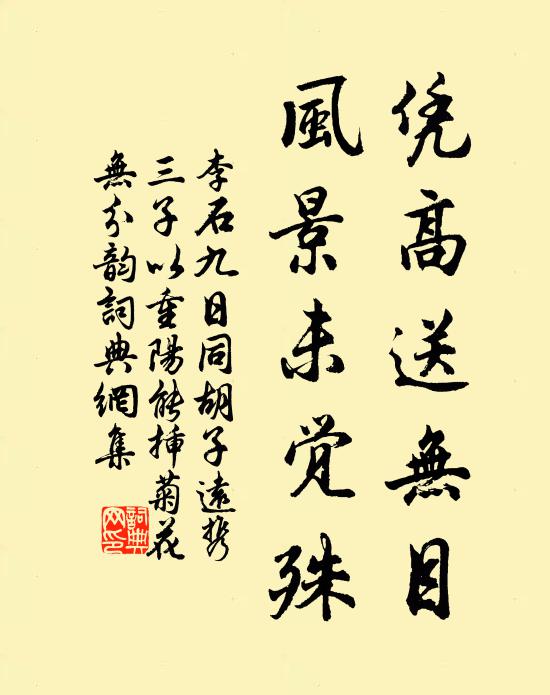 凭高送無目
風景未觉殊
李石九日同胡子遠携
三子以重陽能插菊花
無分韵詞典網集
詞典网印